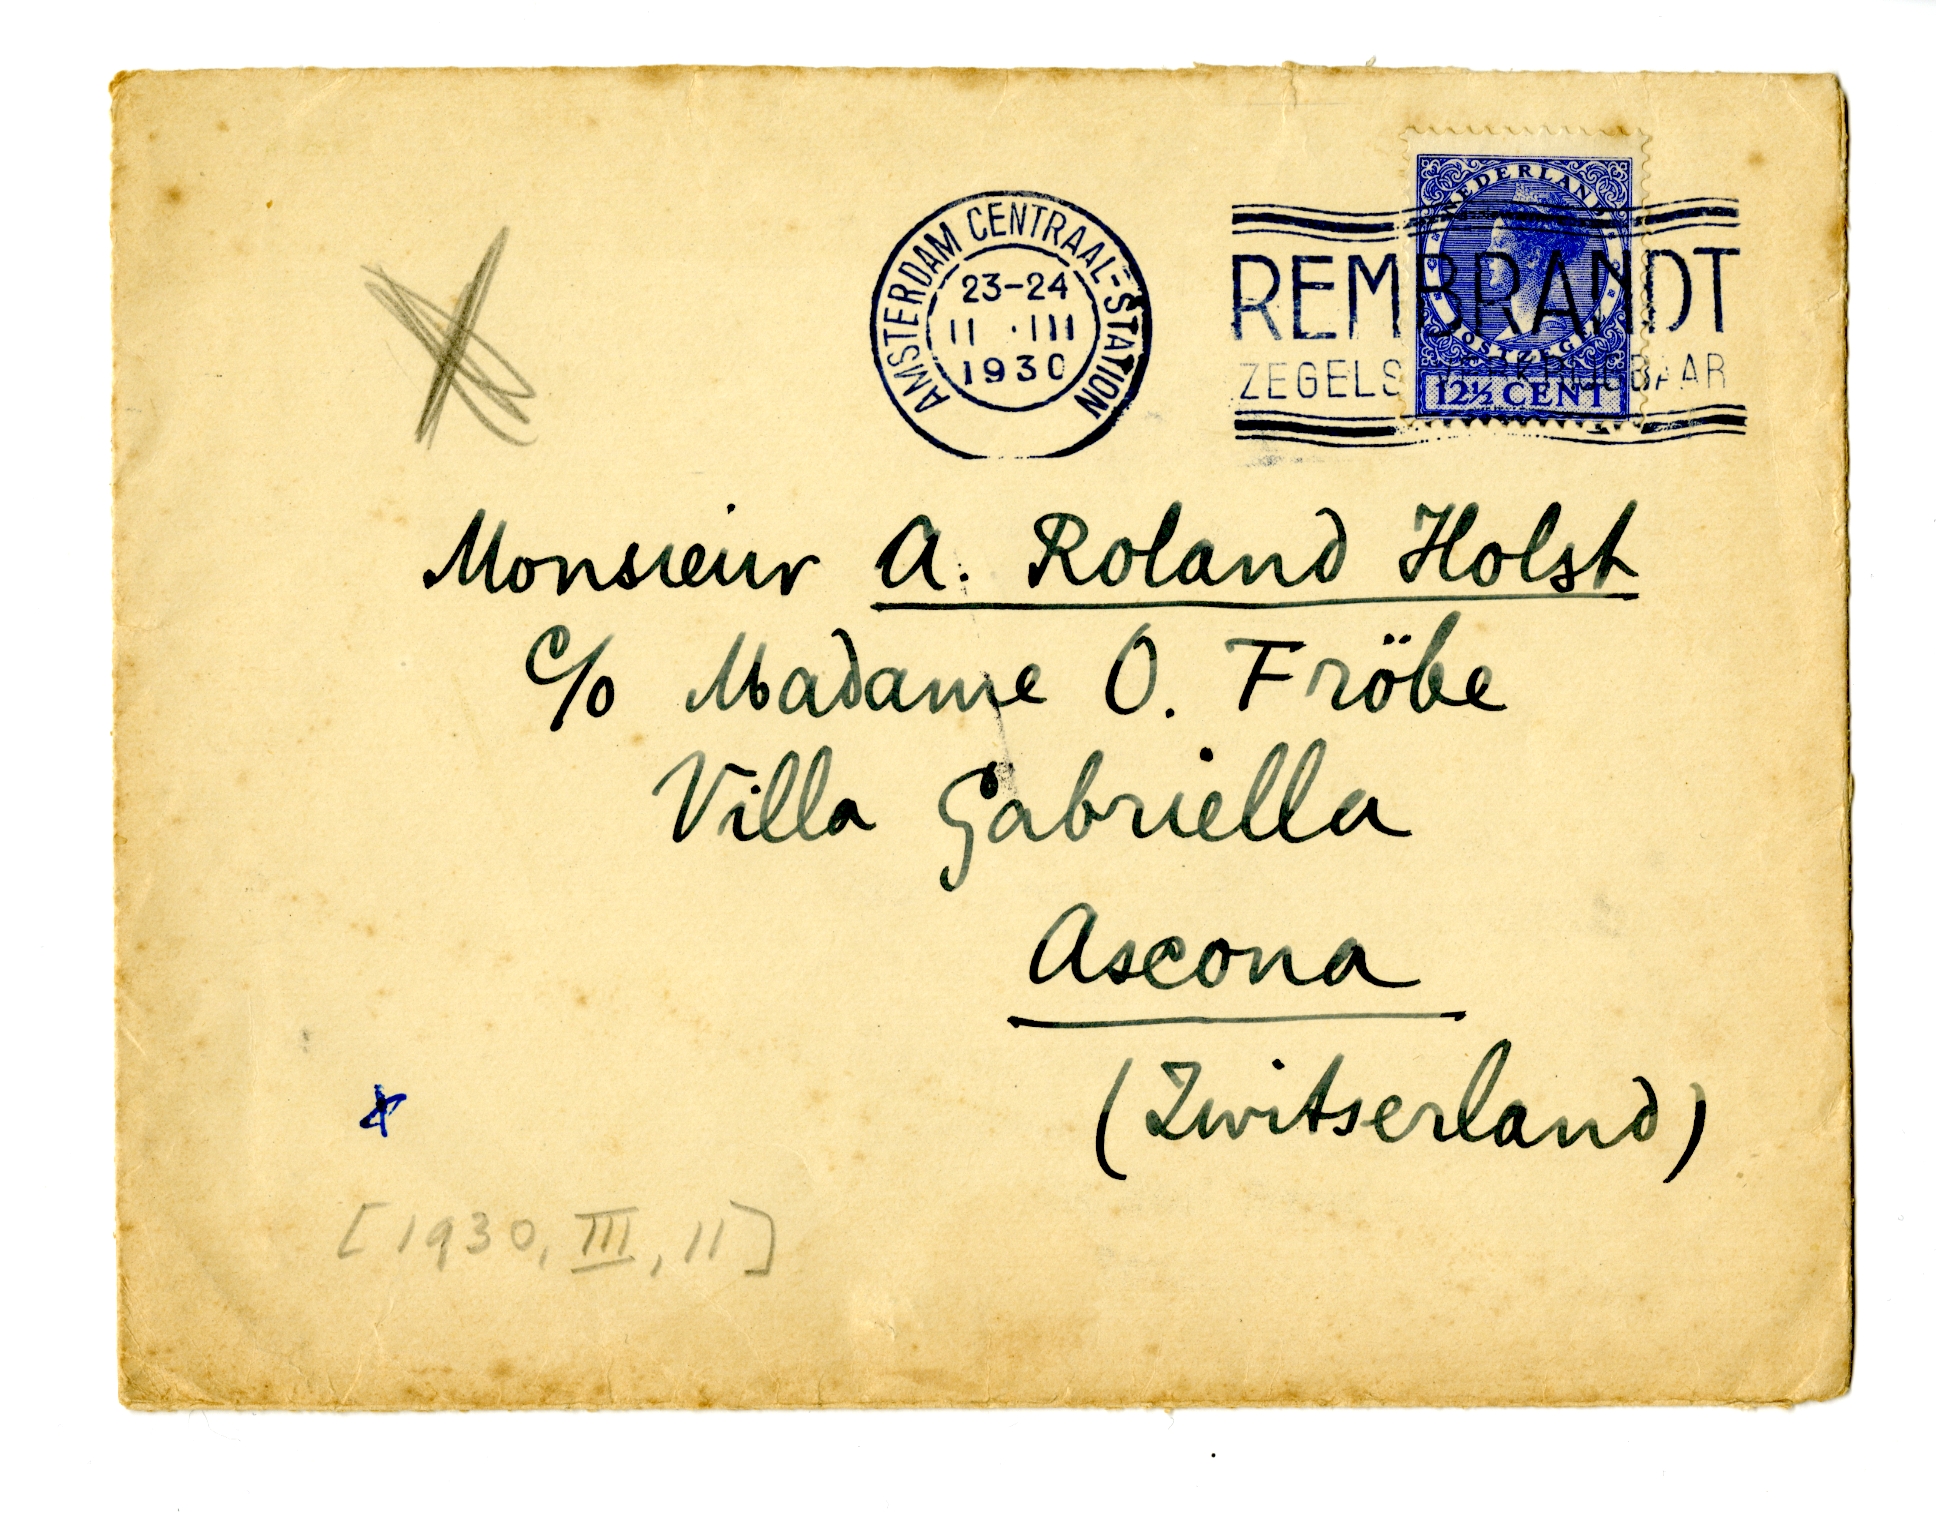 AMSTERDAM CENTRAAL-STATION
23-24
11 · III
1930
NEDERLAND
POSTZEGEL
12½ CENT
REMBRANDT
ZEGELS VERKRIJGBAAR
Monsieur A. Roland Holst
c/o Madame O. Fröbe
Villa Gabriella
Ascona
(Zwitserland)
[1930, III, 11]